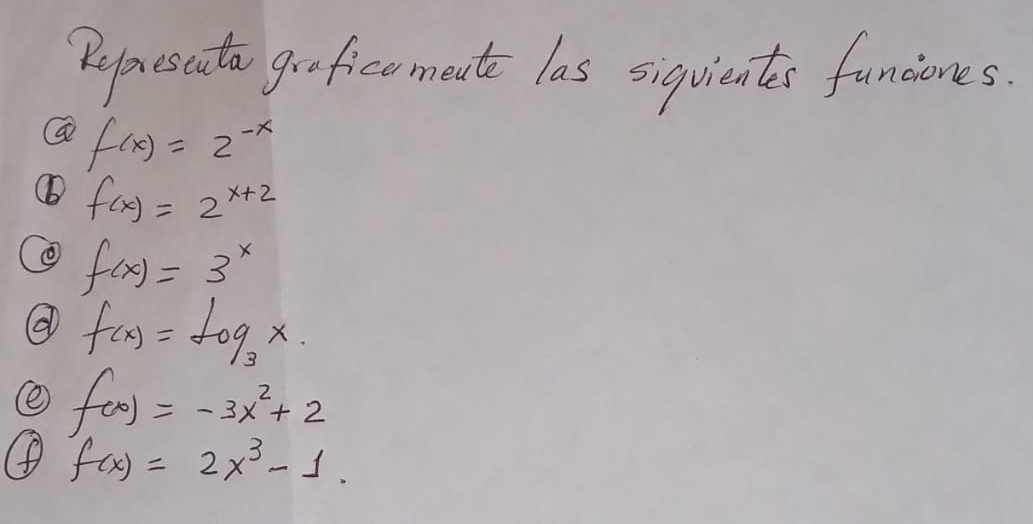 Representa graficamente las siguientes funciones.
ⓐ f(x) = 2^-x
ⓑ f(x) = 2^x+2
ⓒ f(x) = 3^x
ⓓ f(x) = Log₃ x.
ⓔ f(x) = -3x²+ 2
ⓕ f(x) = 2x³ - 1.